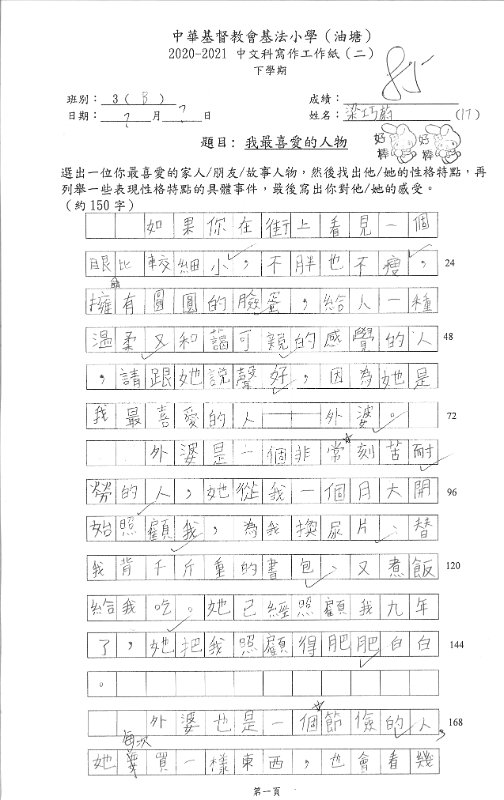 中華基督教會基法小學（油塘）
2020-2021 中文科寫作工作紙（二）
下學期
85
班別：3（B）
成績：
日期：?月?日
姓名：梁巧蔚 (17)
題目：我最喜愛的人物
好棒 好棒
選出一位你最喜愛的家人/朋友/故事人物，然後找出他/她的性格特點，再
列舉一些表現性格特點的具體事件，最後寫出你對他/她的感受。
（約150字）
如果你在街上看見一個
眼比較細小，不胖也不瘦， 24
擁有圓圓的臉蛋，給人一種
溫柔又和藹可親的感覺的人 48
，請跟她說聲好，因為她是
我最喜愛的人——外婆。 72
外婆是一個非常刻苦耐
勞的人，她從我一個月大開 96
始照顧我，為我換尿片、替
我背千斤重的書包、又煮飯 120
給我吃。她已經照顧我九年
了，她把我照顧得肥肥白白 144
。
外婆也是一個節儉的人， 168
每次
她買一樣東西，也會看幾
第一頁